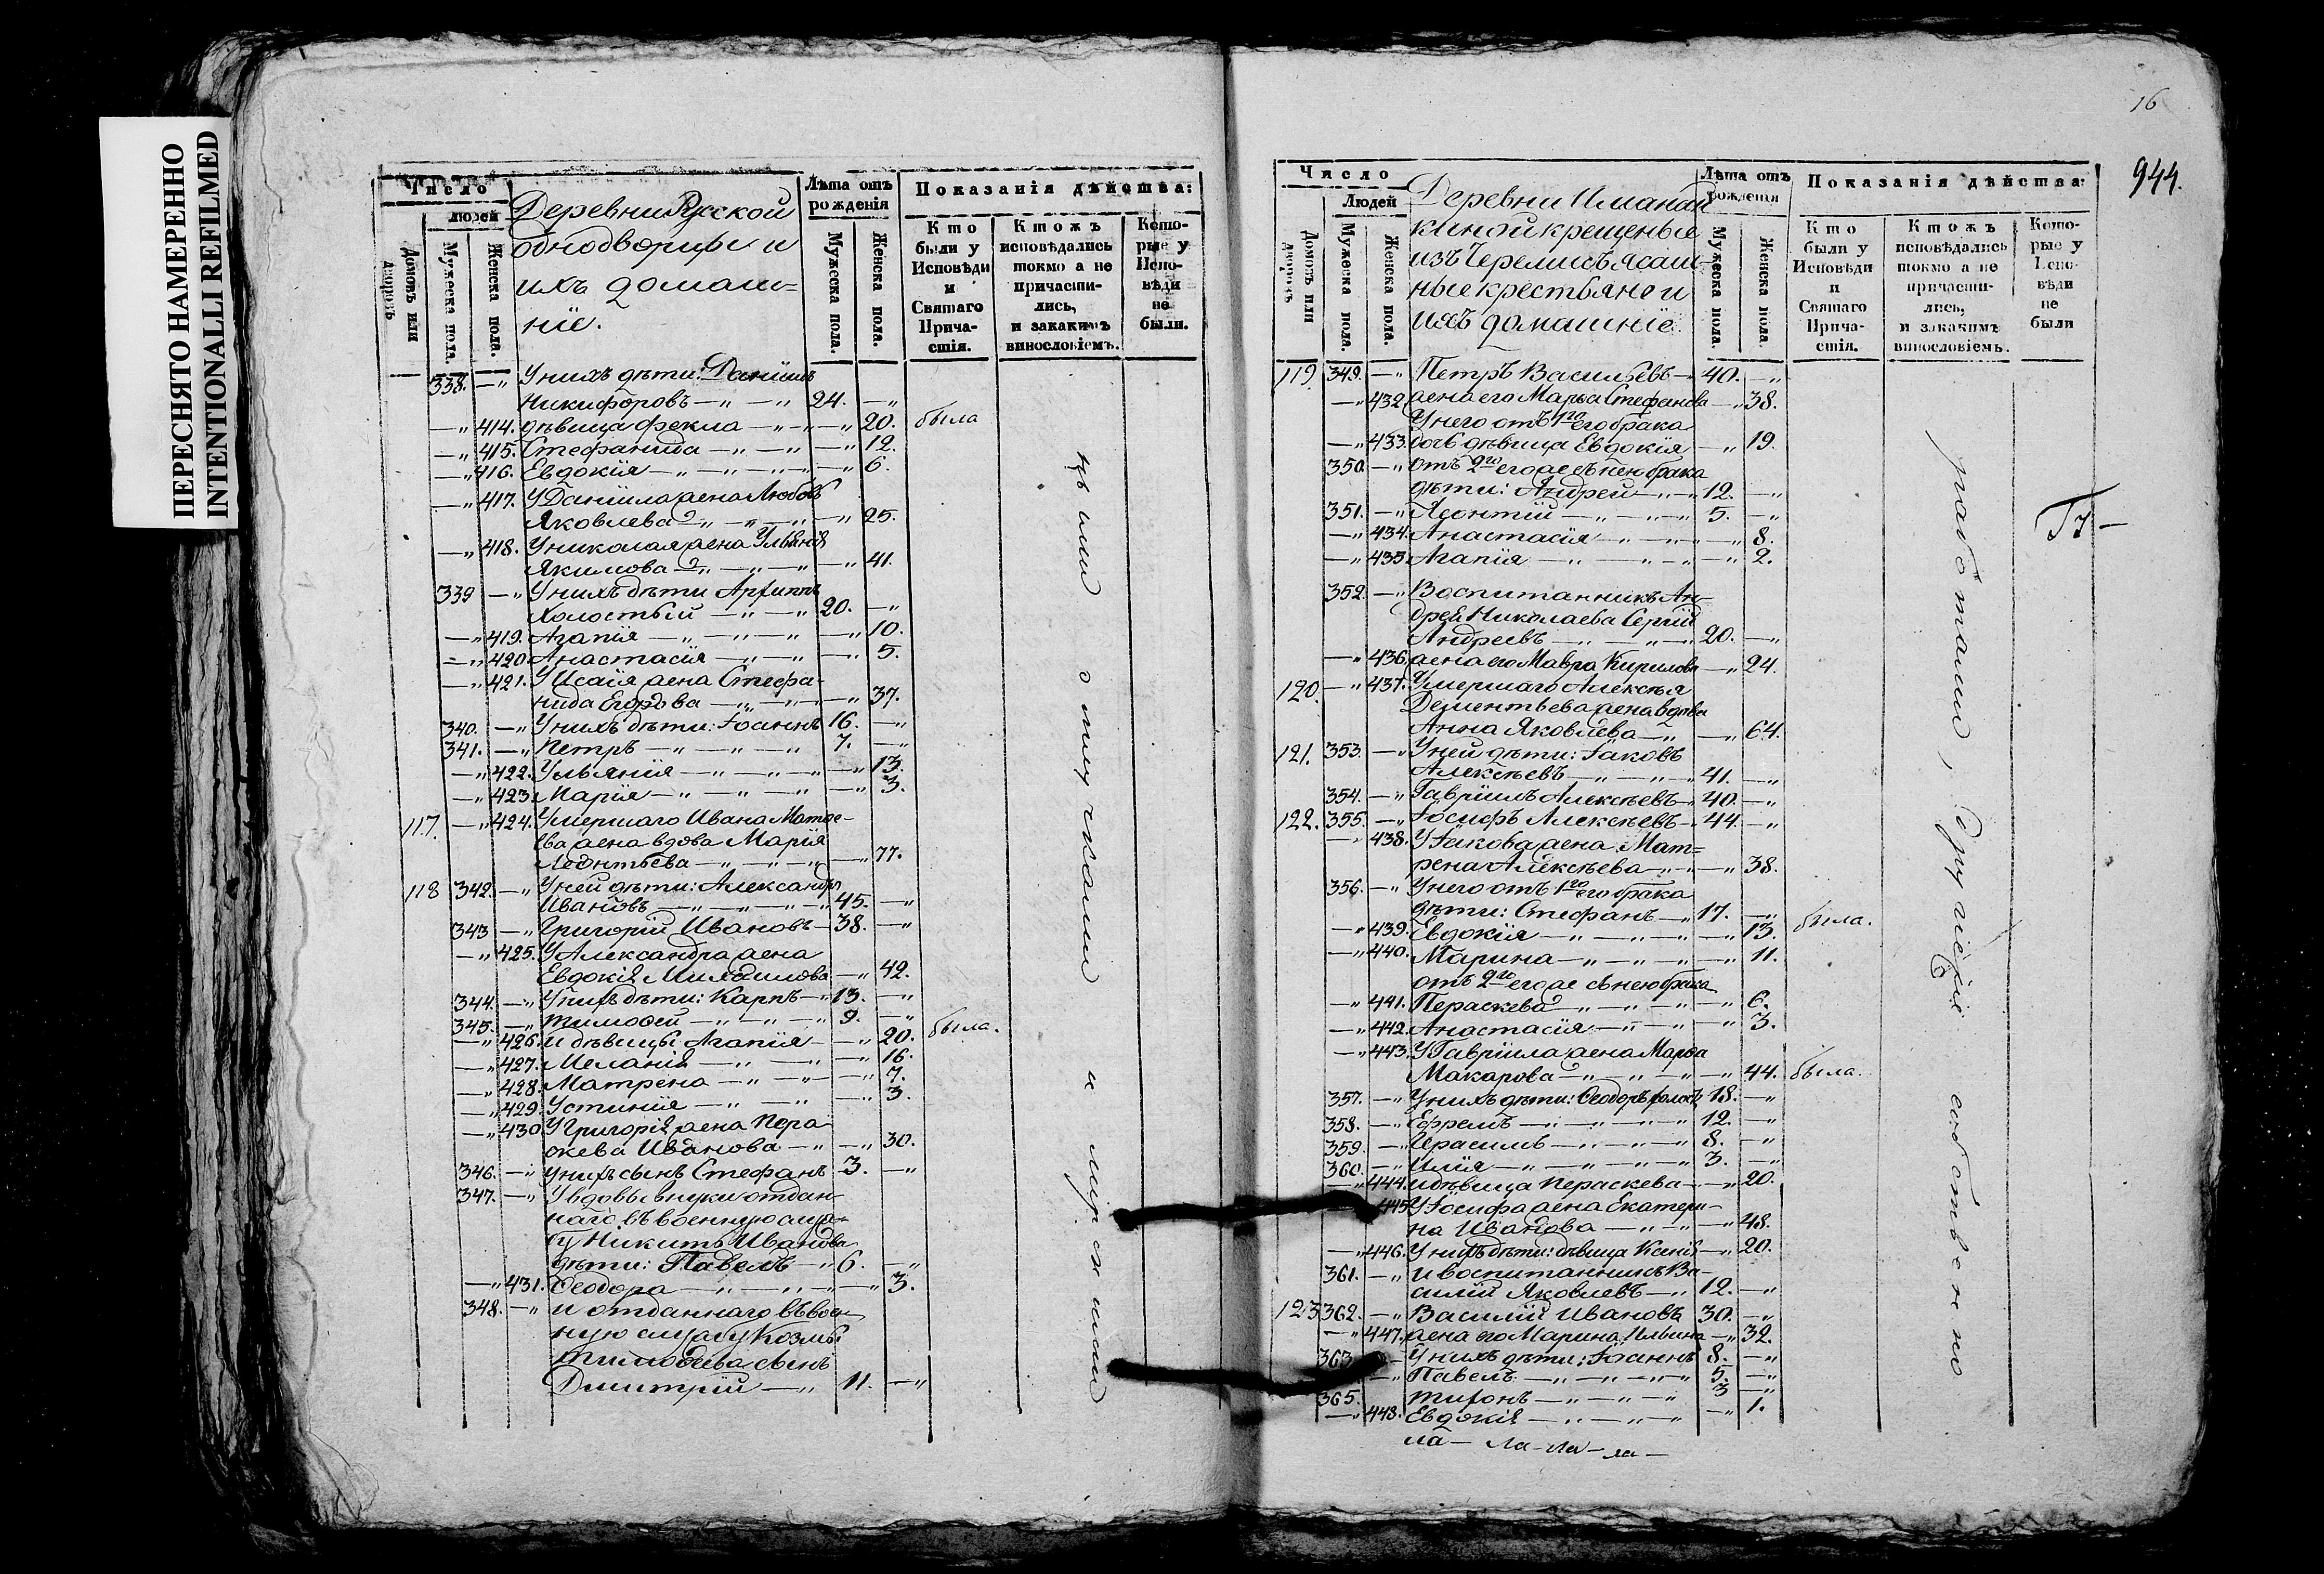 ПЕРЕСНЯТО НАМЕРЕННО
INTENTIONALLI REFILMED
Число
людей
Домовъ или дворовъ
Мужеска пола.
Женска пола.
Деревни Русской
однодворцы и
ихъ домаш=
ніе.
Лѣта отъ
рожденія
Мужеска пола.
Женска пола.
Показанія дѣйства:
Кто
были у
Исповѣди
и
Святаго
Прича-
стія.
Ктожъ
исповѣдались
токмо а не
причасти-
лись,
и закакимъ
винословіемъ.
Кото-
рые у
Испо-
вѣди
не
были.
338. —„ У нихъ дѣти: Даніилъ
Никифоровъ —„ —„ 24. —„
—„ 414. дѣвица Фекла —„ —„ 20. была
—„ 415. Стефанида —„ —„ —„ 12.
—„ 416. Евдокія —„ —„ —„ 6.
—„ 417. У Даніила жена Любовь
Яковлева —„ —„ —„ 25.
—„ 418. У Николая жена Ульянія
Якимова —„ —„ —„ 41.
339 —„ У нихъ дѣти Архиппъ
холостый —„ —„ 20. —„
—„ 419. Агапія —„ —„ —„ 10.
—„ 420. Анастасія —„ —„ —„ 5.
—„ 421. У Исаія жена Стефа-
нида Егорова —„ —„ 37.
340. —„ У нихъ дѣти: Іоаннъ 16. —„
341. —„ Петръ —„ —„ —„ 7. —„
—„ 422. Ульянія —„ —„ —„ 13.
—„ 423. Марія —„ —„ —„ 3.
117. —„ 424. Умершаго Ивана Матѳе-
ева жена вдова Марія
Леонтьева —„ —„ —„ 77.
118 342. —„ У ней дѣти: Александръ
Ивановъ —„ —„ —„ 45. —„
343 —„ Григорій Ивановъ — 38. —„
—„ 425. У Александра жена
Евдокія Михаилова —„ 42.
344. —„ У нихъ дѣти: Карпъ —„ 13. —„
345. —„ Тимоѳей —„ —„ —„ 9. —„
—„ 426. и дѣвицы Агапія — —„ 20. была.
—„ 427. Меланія —„ —„ —„ 16.
—„ 428. Матрена —„ —„ —„ 7.
—„ 429. Устинія —„ —„ —„ 3.
—„ 430 У Григорія жена Пера
скева Иванова —„ —„ 30.
346. —„ У нихъ сынъ Стефанъ 3. —„
347. —„ У вдовы внуки отдан-
наго въ военную служ-
бу Никиты Иванова
дѣти: Павелъ —„ 6. —„
—„ 431. Ѳеодора —„ —„ —„ 3.
348. —„ и отданнаго въ воен-
ную службу Козмы
Тимоѳеева сынъ
Димитрій —„ 11. —„
16
944.
Число
Людей
Домовъ или дворовъ
Мужеска пола.
Женска пола.
Деревни Иманай
киной крещеные
изъ Черемисъ ясаш-
ные крестьяне и
ихъ домашніе.
Лѣта отъ
рожденія
Мужеска пола.
Женска пола.
Показанія дѣйства:
Кто
были у
Исповѣди
и
Святаго
Прича-
стія.
Ктожъ
исповѣдались
токмо а не
причасти-
лись,
и закакимъ
винословіемъ.
Кото-
рые у
Испо-
вѣди
не
были
119 349. —„ Петръ Васильевъ —„ 40. —„
—„ 432. жена его Марѳа Стефанова —„ 38.
У него отъ 1го его брака
—„ 433. дочь дѣвица Евдокія —„ 19.
350. —„ отъ 2го его же съ нею брака
дѣти: Андрей —„ —„ 12. —„
351. —„ Леонтій —„ —„ —„ 5. —„
—„ 434. Анастасія —„ —„ —„ 8.
—„ 435 Агапія —„ —„ —„ 2.
352. —„ Воспитанникъ Ан-
дрея Николаева Сергій
Андреевъ —„ —„ 20. —„
—„ 436. жена его Мавра Кирилова —„ 24.
120. —„ 437. Умершаго Алексѣя
Дементьева жена вдова
Анна Яковлева —„ —„ 64.
121. 353. —„ У ней дѣти: Іаковъ
Алексѣевъ —„ —„ 41. —„
354. —„ Гавріилъ Алексѣевъ —„ 40. —„
122. 355. —„ Іосифъ Алексѣевъ —„ 44. —„
—„ 438. У Іакова жена Мат=
рена Алексѣева —„ —„ 38.
356. —„ У него отъ 1го его брака
дѣти: Стефанъ —„ 17. —„
—„ 439. Евдокія —„ —„ —„ 13. была.
—„ 440. Марина —„ —„ —„ 11.
отъ 2го его же съ нею брака
—„ 441. Пераскева —„ —„ —„ 6.
—„ 442. Анастасія —„ —„ —„ 3.
—„ 443. У Гавріила жена Марѳа
Макарова —„ —„ —„ 44. была.
357. —„ У нихъ дѣти: Ѳеодоръ холост 18. —„
358. —„ Ефремъ —„ —„ —„ 12. —„
359 —„ Герасимъ —„ —„ —„ 8. —„
360. —„ Илія —„ —„ —„ 3. —„
—„ 444. и дѣвица Пераскева —„ 20.
445. У Іосифа жена Екатери-
на Иванова —„ —„ 48.
—„ 446. У нихъ дѣти: дѣвица Ксенія —„ 20.
361. —„ и воспитанникъ Ва-
силій Яковлевъ —„ 12. —„
123 362. —„ Василій Ивановъ 30. —„
—„ 447. жена его Марина Ильина —„ 32.
363 У нихъ дѣти: Іоаннъ 8. —„
—„ Павелъ —„ —„ —„ 5. —„
365. Тихонъ —„ —„ —„ 3 —„
—„ 448. Евдокія —„ —„ —„ 1.